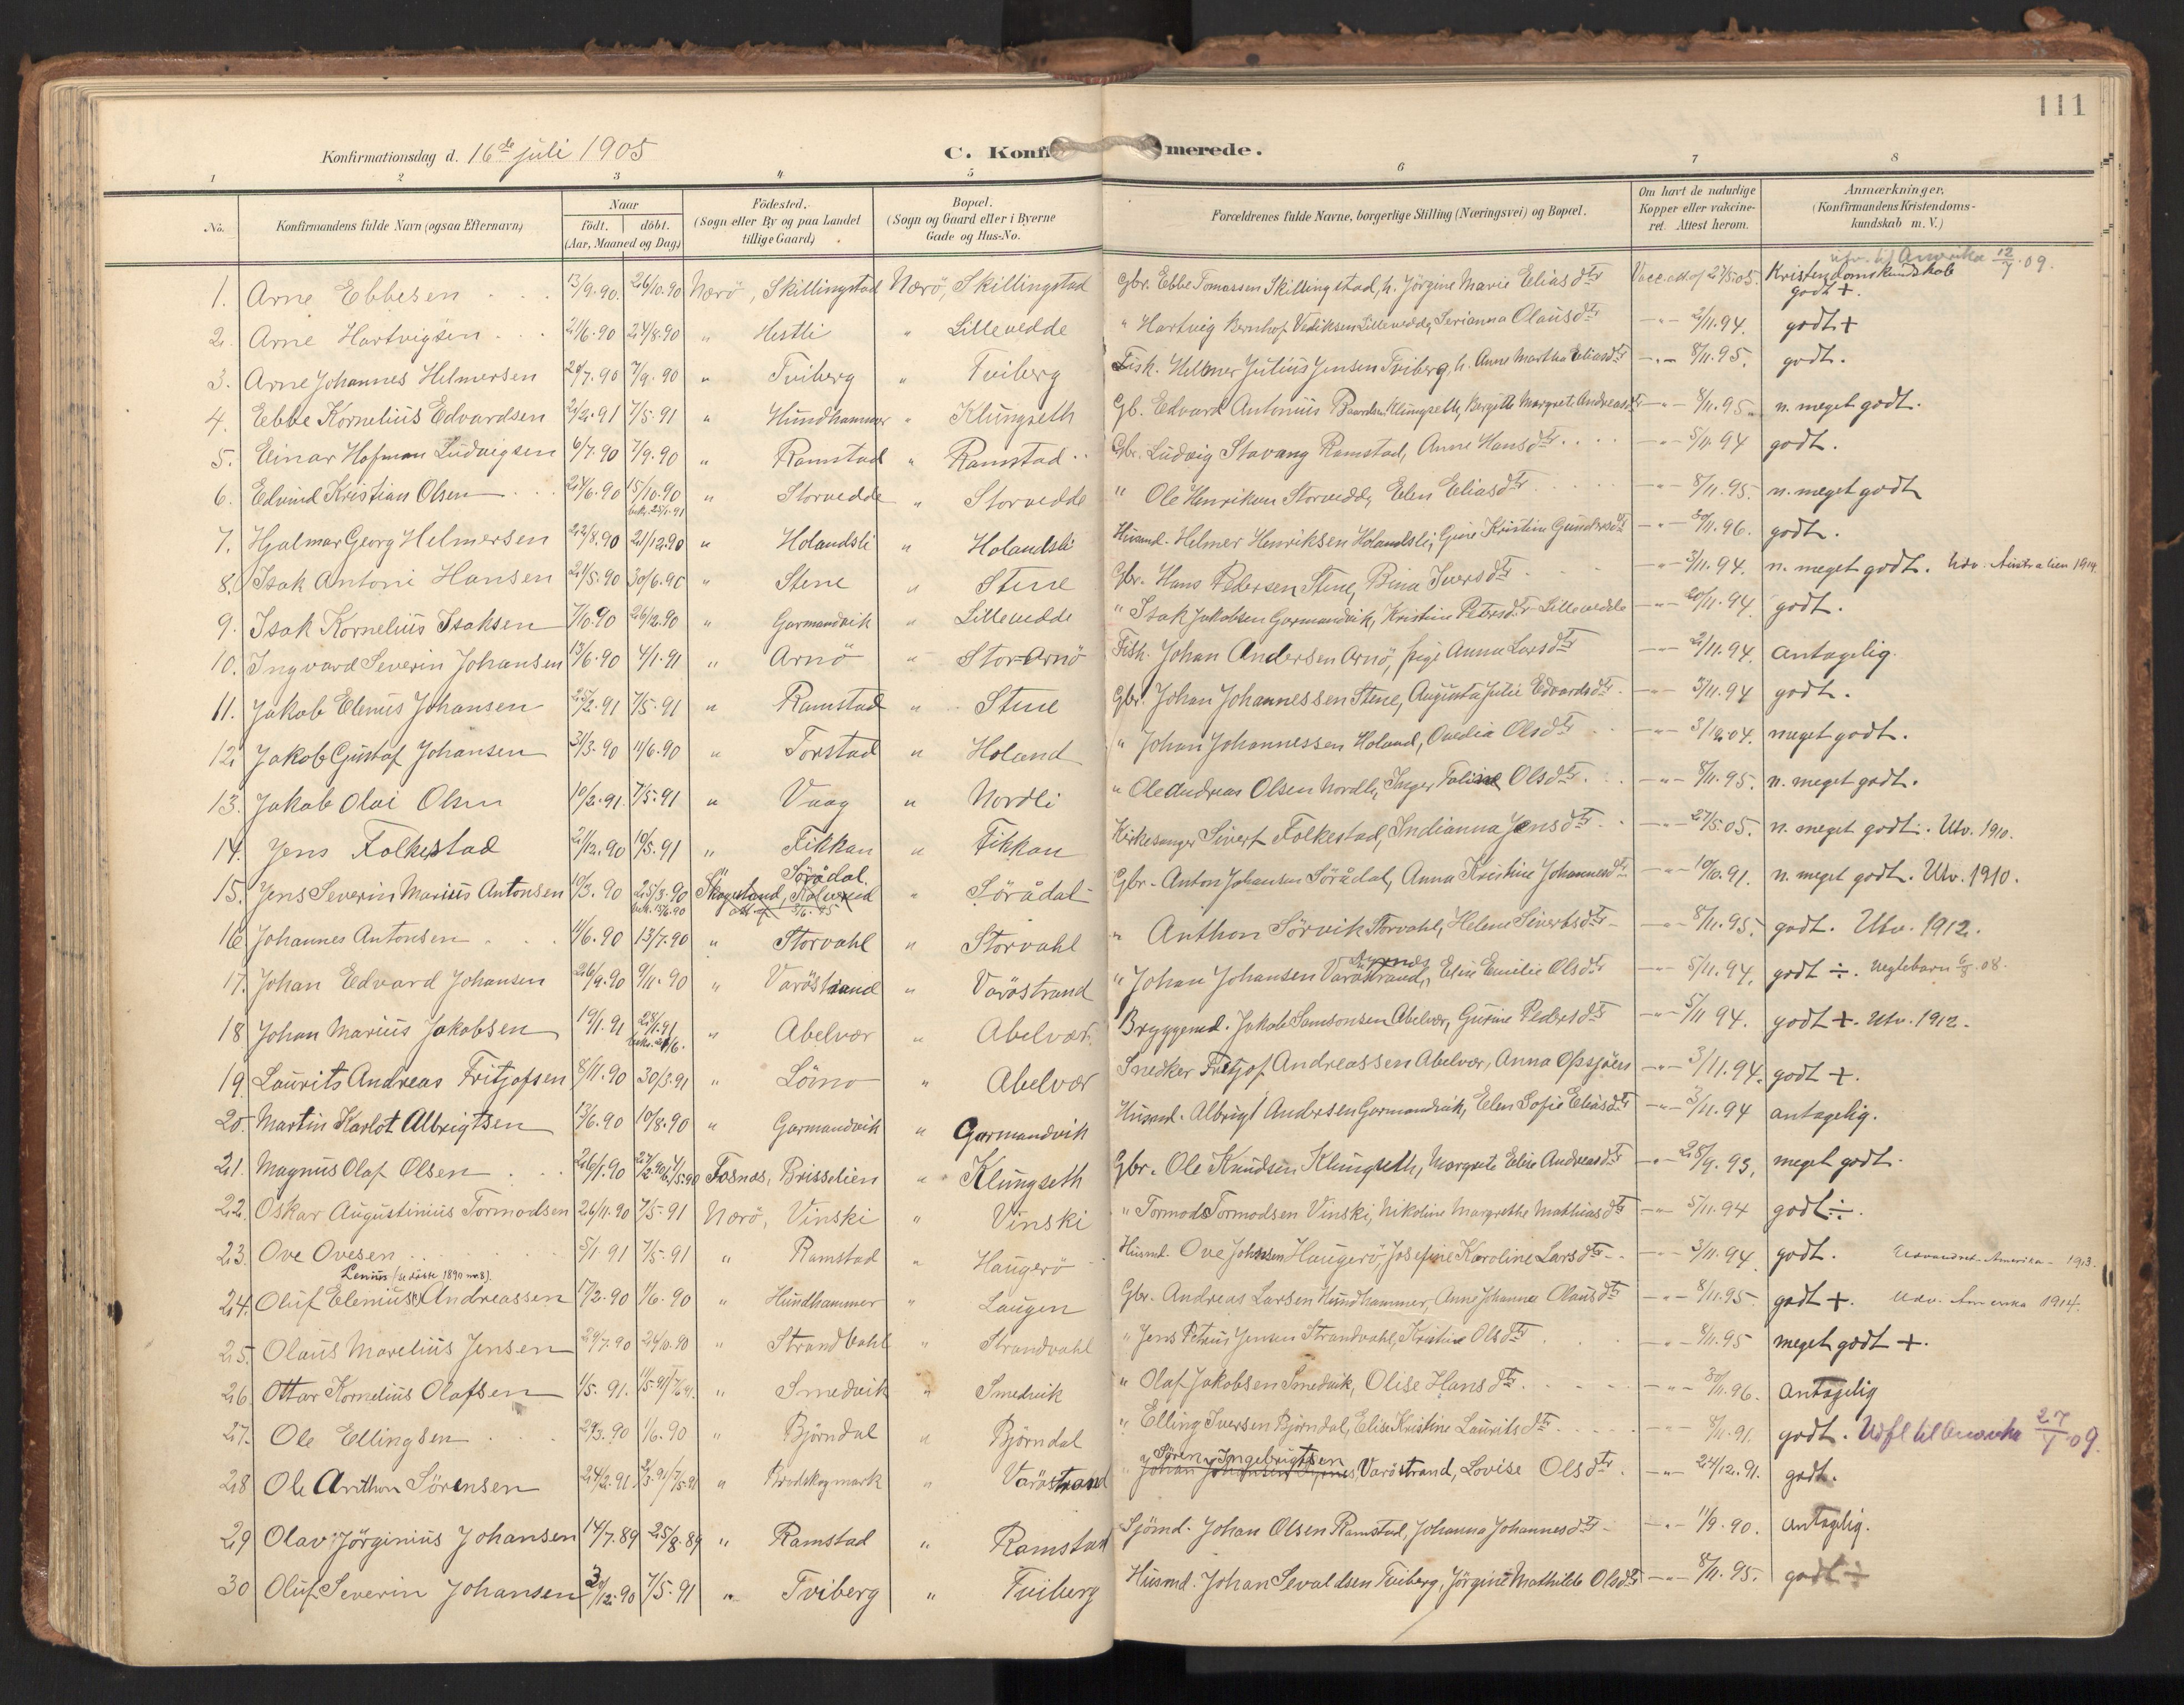 111
Konfirmationsdag d. 16de juli 1905
C. Konfirmerede.
1 2 3 4 5 6 7 8
No. Konfirmandens fulde Navn (ogsaa Efternavn) Naar født. døbt. (Aar, Maaned og Dag) Fødested. (Sogn eller By og paa Landet tillige Gaard) Bopæl. (Sogn og Gaard eller i Byerne Gade og Hus-No. Forældrenes fulde Navne, borgerlige Stilling (Næringsvei) og Bopæl. Om havt de naturlige Kopper eller vakcineret. Attest herom. Anmærkninger. (Konfirmandens Kristendomskundskab m. V.)
utv. til Amerika 12/7 09.
1. Arne Ebbesen 13/9.90. 26/10.90 Nærö, Skillingstad Nærö, Skillingstad Gbr. Ebbe Tomassen Skillingstad, h. Jörgine Marie Eliasdtr Vacc.att.af 27/5.05. Kristendomskundskab godt +.
2. Arne Hartvigsen 2/6.90 24/8.90 " Hestli " Lillevedde " Hartvig Bernhof Lillevedde, Serianna Olausdtr -"- 2/11.94. godt +
3. Arne Johannes Helmersen 20/7.90 7/9.90 " Tviberg " Tviberg Fisk. Helmer Julius Jensen Tviberg, h. Anne Martha Eliasdtr -"- 8/11.95. godt.
4. Ebbe Kornelius Edvardsen 2/2.91 7/5.91 " Hundhammer " Klungseth Gb. Edvard Antonius Klungseth, Bergitte Margrete Andreasdtr -"- 8/11.95. n. meget godt.
5. Einar Hofman Ludvigsen 6/7.90 7/9.90 " Ramstad " Ramstad Gbr. Ludvig Stavang Ramstad, Anne Hansdtr -"- 5/11.94 godt.
6. Edvind Kristian Olsen 24/6.90 15/10.90 bekr. 25/1.91 " Storvedde " Storvedde " Ole Henriksen Storvedde, Elen Eliasdtr -"- 8/11.95. n. meget godt
7. Hjalmar Georg Helmersen 22/8.90 21/12.90 " Holandsli " Holandsli Husmd. Helmer Henriksen Holandsli, Kristine Gundersdtr -"- 30/11.96. godt.
8. Isak Antoni Hansen 21/5.90 30/6.90 " Stene " Stene Gbr. Hans Pedersen Stene, Bina Iversdtr -"- 3/11.94. n. meget godt. Udv. Australien 1914.
9. Isak Kornelius Isaksen 7/10.90 26/12.90 " Garmandvik " Lillevedde " Isak Jakobsen Garmandvik, Kristine Petersdtr Lillevedde -"- 20/11.94. godt.
10. Ingvard Severin Johansen 13/6.90 4/1.91 " Arnö " Stor-Arnö Fisk. Johan Andersen Arnö, pige Anna Larsdtr -"- 2/11.94. antagelig.
11. Jakob Elenius Johansen 25/2.91 7/5.91 " Ramstad " Stene Gbr. Johan Johannessen Stene, Augusta Julie Edvardsdtr -"- 3/11.94 godt.
12. Jakob Gustaf Johansen 31/3.90 11/6.90 " Torstad " Holand " Johan Johannessen Holand, Ovedia Olsdtr -"- 3/12.04. meget godt.
13. Jakob Olai Olsen 10/2.91. 7/5.91 " Vaag " Nordli " Ole Andreas Olsen Nordli, Inger Olsdtr. -"- 8/11.95. n. meget godt.
14. Jens Folkestad 21/12.90 10/5.91 " Fikkan " Fikkan Kirkesanger Sivert Folkestad, Indianna Jensdtr -"- 27/5.05. n. meget godt. Utv. 1910.
Sörådal.
15. Jens Severin Marius Antonsen 10/3.90 25/3.90 bekr. 15/6.90 Skogstand, Kolvered " Sörådal Gbr. Anton Johansen Sörådal, Anna Kristine Johannesdtr -"- 10/10.91. n. meget godt. Utv. 1910.
16 Johannes Antonsen 11/6.90 13/7.90 " Storvahl " Storvahl " Anthon Sörvik Storvahl, Helene Sivertsdtr -"- 8/11.95. godt. Utv. 1912.
17. Johan Edvard Johansen 26/9.90 9/11.90 " Varöstrand " Varöstrand " Johan Johansen Varöstrand, Elise Emilie Olsdtr -"- 5/11.94. godt ÷. Uegtebarn 6/8.08.
18 Johan Marius Jakobsen 19/1.91 28/1.91 " Abelvær " Abelvær. Bryggemd. Jakob Samsonsen Abelvær, Gurine Pedersdtr -"- 5/11 94. godt +. Utv. 1912.
19. Laurits Andreas Fritjofsen 8/11.90 30/3.91 " Lömo " Abelvær Snedker Fritjof Andreassen Abelvær, Anna Opsjöen -"- 3/11.94. godt +.
20. Martin Karlot Albrigtsen 13/6.90 10/8.90 " Garmandvik " Garmandvik Husmd. Albrigt Andersen Garmandvik, Elen Sofie Eliasdtr -"- 3/11.94 antagelig.
21. Magnus Olaf Olsen 26/1.90 Fosnæs, Brisselien " Klungseth Gbr. Ole Knudsen Klungseth, Margrete Elise Andreasdtr -"- 28/9.93, meget godt.
22. Oskar Augustinius Tormodsen 26/11.90 7/5.91 Nærö, Vinski " Vinski " Tormod Tormodsen Vinski, Nikoline Margrethe Mathiasdtr -"- 5/11.94 godt ÷.
23. Ove Ovesen 5/1 91 7/5.91 " Ramstad " Haugerö Husmd. Ove Johnsen Haugerö, Josefine Karoline Larsdtr -"- 3/11.94. godt. Udvandret Amerika 1913.
Lenius (se döbte 1890 no 8).
24. Oluf Elenius Andreassen 17/2.90 1/6.90 " Hundhammer " Laugen Gbr. Andreas Larsen Hundhammer, Anne Johanna Olausdtr -"- 8/11.95. godt +. Udv. Amerika 1914.
25. Olaus Marelius Jensen 29/7.90 26/10.90 " Strandvahl " Strandvahl " Jens Petrus Jensen Strandvahl, Kristine Olsdtr -"- 8/11.95 meget godt +.
26. Ottar Kornelius Olafsen 1/5.91. " Smedvik " Smedvik " Olaf Jakobsen Smedvik, Olise Hansdtr. -"- 30/11.96. antagelig
27. Ole Ellingsen 29/3.90 1/6.90 " Björndal " Björndal " Elling Iversen Björndal, Elise Kristine Lauritsdtr -"- 8/11.91. godt. Udfl til Amerika 27/1 09.
Sören Ingebrigtsen
28 Ole Anthon Sörensen 24/2.91 " " Varöstrand " Johan Johansen Varöstrand, Lovise Olsdtr. -"- 24/12.91. godt.
29 Olav Jörginius Johansen 14/7.89 25/8.89 " Ramstad " Ramstad Sjömd. Johan Olsen Ramstad, Johanna Johannesdtr -"- 11/9.90. antagelig.
30 Oluf Severin Johansen 30/12.90 7/5.91 " Tviberg " Tviberg Husmd. Johan Sevaldsen Tviberg, Jörgine Mathilde Olsdtr -"- 8/11.95. godt ÷